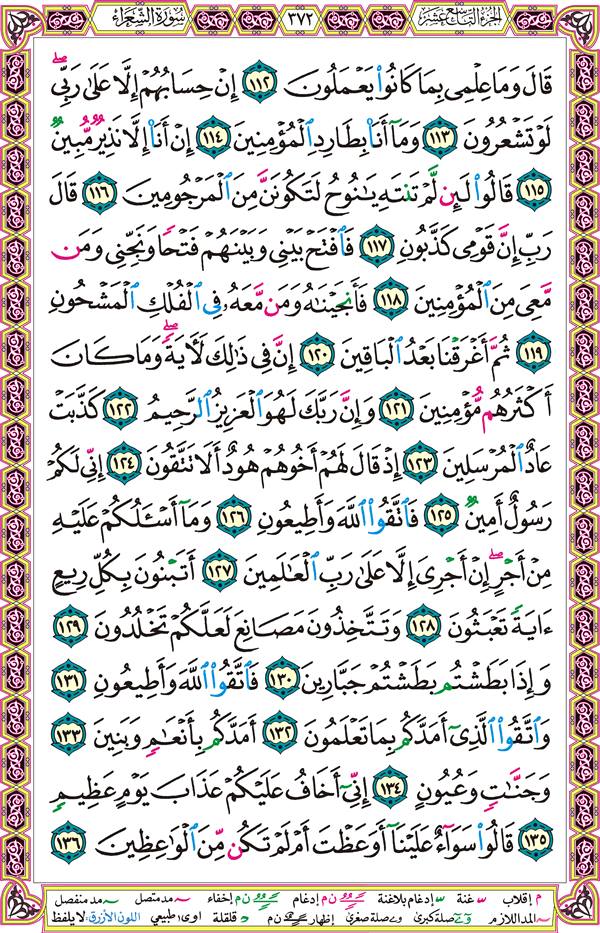 الجزء التاسع عشر ٣٧٢ سورة الشعراء
قَالَ وَمَا عِلْمِى بِمَا كَانُوا۟ يَعْمَلُونَ ١١٢ إِنْ حِسَابُهُمْ إِلَّا عَلَىٰ رَبِّى ۖ
لَوْ تَشْعُرُونَ ١١٣ وَمَآ أَنَا۠ بِطَارِدِ ٱلْمُؤْمِنِينَ ١١٤ إِنْ أَنَا۠ إِلَّا نَذِيرٌ مُّبِينٌ
١١٥ قَالُوا۟ لَئِن لَّمْ تَنتَهِ يَـٰنُوحُ لَتَكُونَنَّ مِنَ ٱلْمَرْجُومِينَ ١١٦ قَالَ
رَبِّ إِنَّ قَوْمِى كَذَّبُونِ ١١٧ فَٱفْتَحْ بَيْنِى وَبَيْنَهُمْ فَتْحًا وَنَجِّنِى وَمَن
مَّعِىَ مِنَ ٱلْمُؤْمِنِينَ ١١٨ فَأَنجَيْنَـٰهُ وَمَن مَّعَهُۥ فِى ٱلْفُلْكِ ٱلْمَشْحُونِ
١١٩ ثُمَّ أَغْرَقْنَا بَعْدُ ٱلْبَاقِينَ ١٢٠ إِنَّ فِى ذَٰلِكَ لَـَٔايَةً ۖ وَمَا كَانَ
أَكْثَرُهُم مُّؤْمِنِينَ ١٢١ وَإِنَّ رَبَّكَ لَهُوَ ٱلْعَزِيزُ ٱلرَّحِيمُ ١٢٢ كَذَّبَتْ
عَادٌ ٱلْمُرْسَلِينَ ١٢٣ إِذْ قَالَ لَهُمْ أَخُوهُمْ هُودٌ أَلَا تَتَّقُونَ ١٢٤ إِنِّى لَكُمْ
رَسُولٌ أَمِينٌ ١٢٥ فَٱتَّقُوا۟ ٱللَّهَ وَأَطِيعُونِ ١٢٦ وَمَآ أَسْـَٔلُكُمْ عَلَيْهِ
مِنْ أَجْرٍ ۖ إِنْ أَجْرِىَ إِلَّا عَلَىٰ رَبِّ ٱلْعَـٰلَمِينَ ١٢٧ أَتَبْنُونَ بِكُلِّ رِيعٍ
ءَايَةً تَعْبَثُونَ ١٢٨ وَتَتَّخِذُونَ مَصَانِعَ لَعَلَّكُمْ تَخْلُدُونَ ١٢٩
وَإِذَا بَطَشْتُم بَطَشْتُمْ جَبَّارِينَ ١٣٠ فَٱتَّقُوا۟ ٱللَّهَ وَأَطِيعُونِ ١٣١
وَٱتَّقُوا۟ ٱلَّذِىٓ أَمَدَّكُم بِمَا تَعْلَمُونَ ١٣٢ أَمَدَّكُم بِأَنْعَـٰمٍ وَبَنِينَ ١٣٣
وَجَنَّـٰتٍ وَعُيُونٍ ١٣٤ إِنِّىٓ أَخَافُ عَلَيْكُمْ عَذَابَ يَوْمٍ عَظِيمٍ
١٣٥ قَالُوا۟ سَوَآءٌ عَلَيْنَآ أَوَعَظْتَ أَمْ لَمْ تَكُن مِّنَ ٱلْوَٰعِظِينَ ١٣٦
م إقلاب غنة إدغام بلاغنة ن م إدغام ن م إخفاء مد متصل مد منفصل
المد اللازم صلة كبرى صلة صغرى إظهار ن م قلقلة اوى طبيعي اللون الأزرق: لا يلفظ